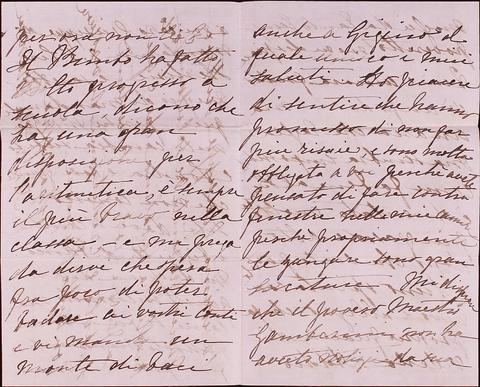 per ora non
Il Bimbo ha fatto
progresso a
scuola, dicono che
ha una gran
disposizione per
l'aritmetica, è sempre
il più bravo nella
classe - e mi prega
da dirve che spera
fra poco di poter
badare ai vostri conti
e vi manda un
monte di baci
anche a Gigino al
quale unisco i miei
saluti. Ho piacere
di sentire che hanno
promesso di non far
più risaie, e sono molto
obbligata a voi perchè avete
pensato di fare contro
finestre nelle mie camere
perchè propriamente
le zanzare sono gran
seccature. Mi dispiace
che il povero Maestro
non ha
avuto